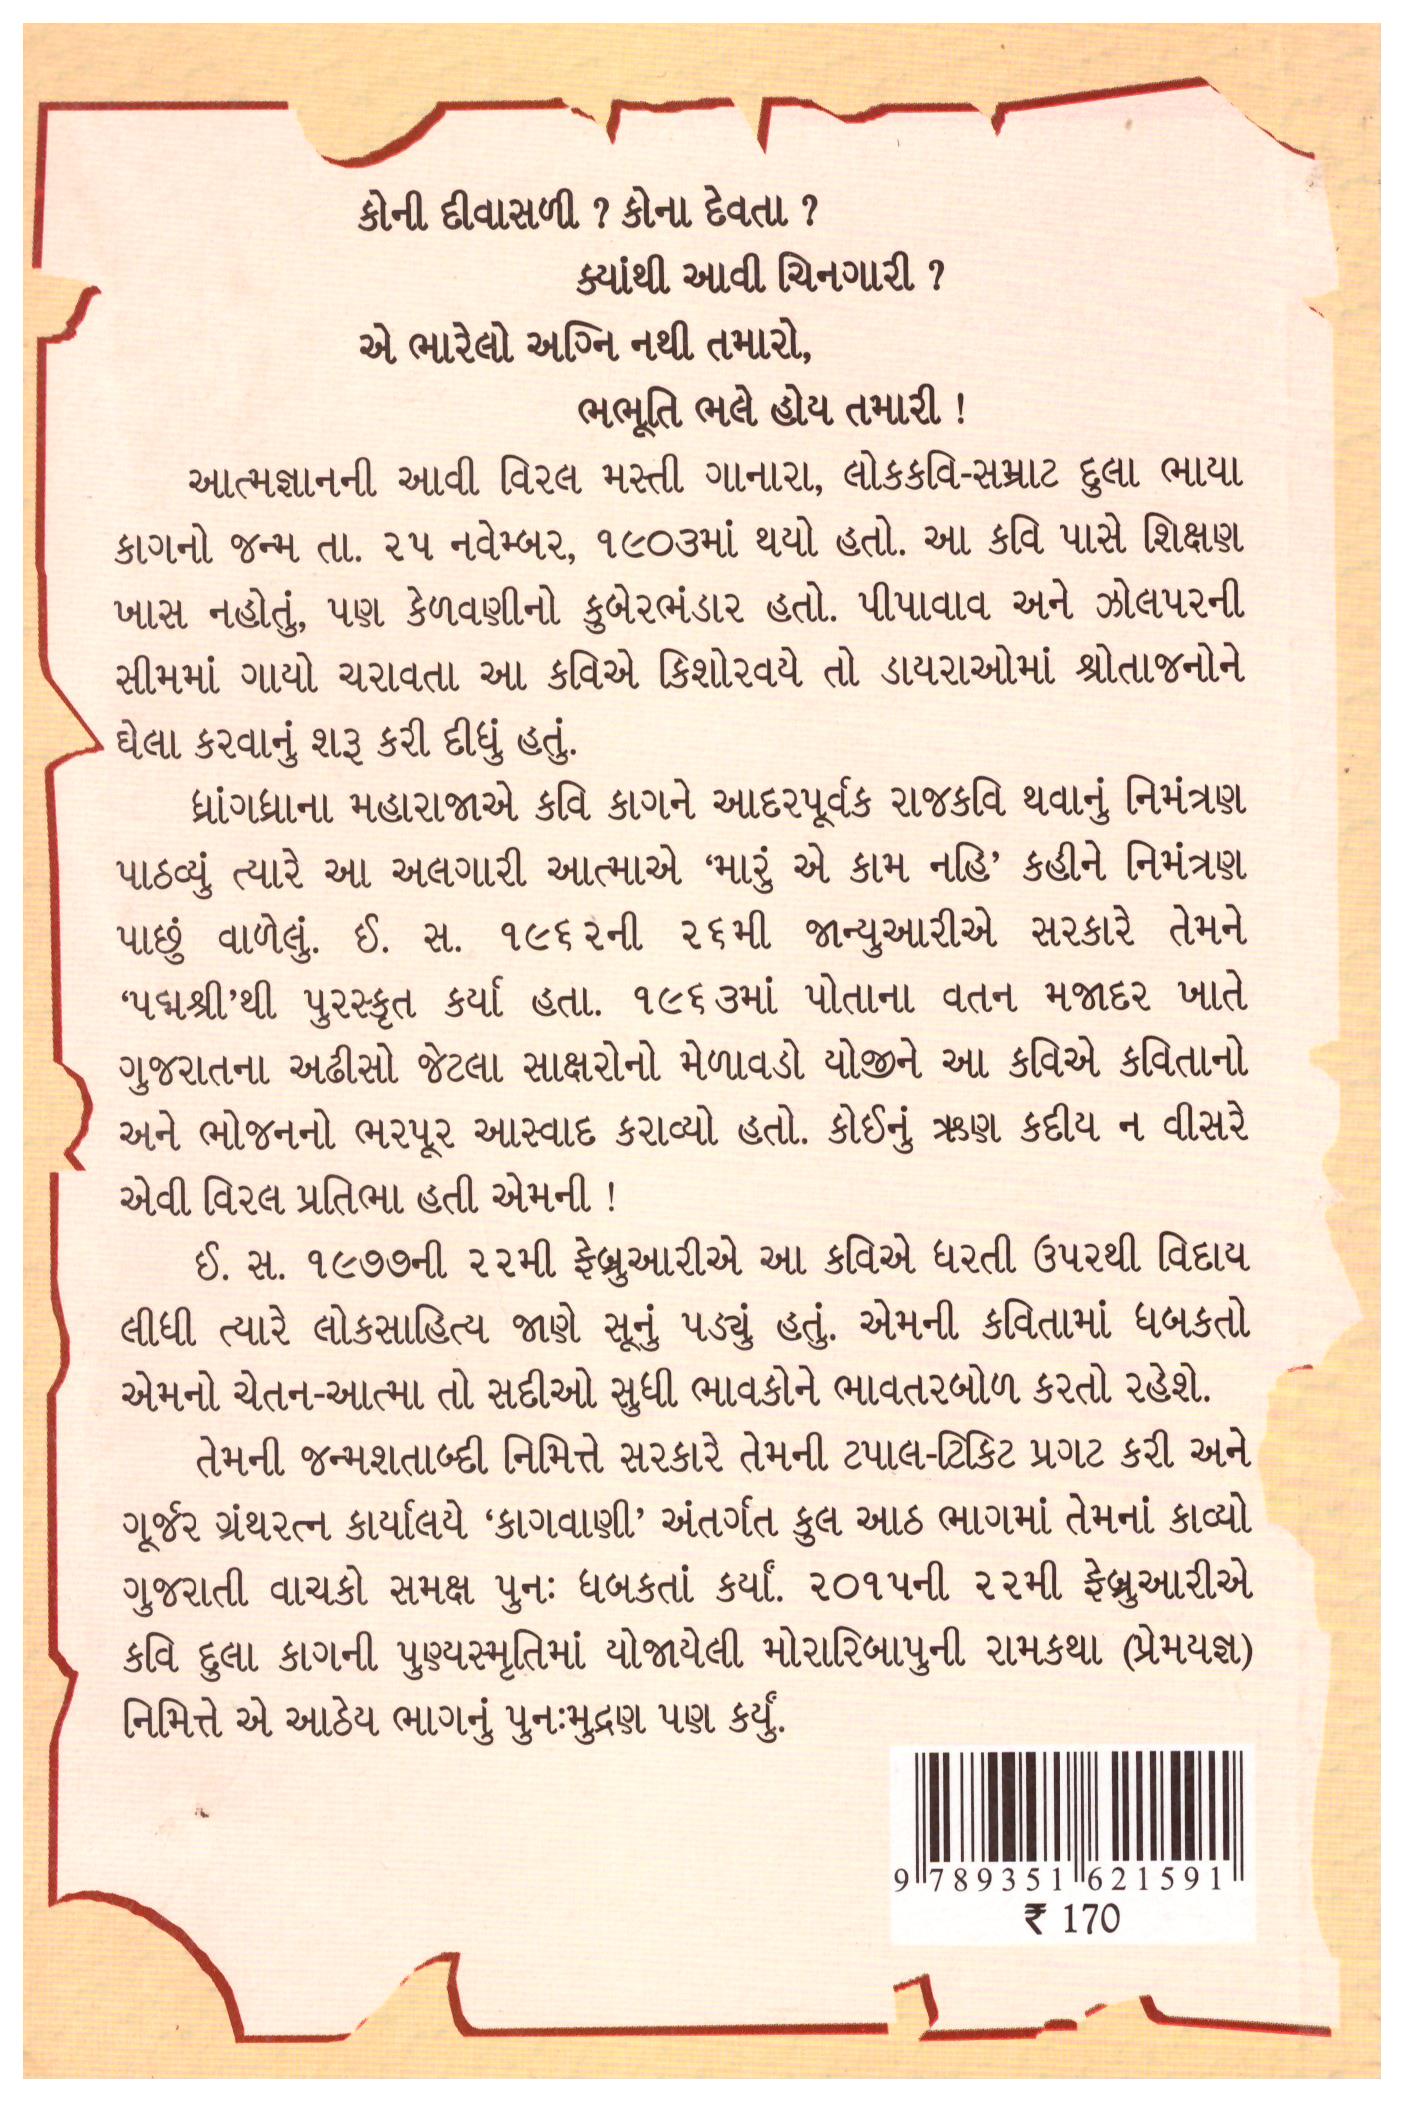 કોની દીવાસળી ? કોના દેવતા ?
ક્યાંથી આવી ચિનગારી ?
એ ભારેલો અગ્નિ નથી તમારો,
ભભૂતિ ભલે હોય તમારી !
આત્મજ્ઞાનની આવી વિરલ મસ્તી ગાનારા, લોકકવિ-સમ્રાટ દુલા ભાયા
કાગનો જન્મ તા. ૨૫ નવેમ્બર, ૧૯૦૩માં થયો હતો. આ કવિ પાસે શિક્ષણ
ખાસ નહોતું, પણ કેળવણીનો કુબેરભંડાર હતો. પીપાવાવ અને ઝોલપરની
સીમમાં ગાયો ચરાવતા આ કવિએ કિશોરવયે તો ડાયરાઓમાં શ્રોતાજનોને
ઘેલા કરવાનું શરૂ કરી દીધું હતું.
ધ્રાંગધ્રાના મહારાજાએ કવિ કાગને આદરપૂર્વક રાજકવિ થવાનું નિમંત્રણ
પાઠવ્યું ત્યારે આ અલગારી આત્માએ ‘મારું એ કામ નહિ’ કહીને નિમંત્રણ
પાછું વાળેલું. ઈ. સ. ૧૯૬૨ની ૨૬મી જાન્યુઆરીએ સરકારે તેમને
‘પદ્મશ્રી’થી પુરસ્કૃત કર્યા હતા. ૧૯૬૩માં પોતાના વતન મજાદર ખાતે
ગુજરાતના અઢીસો જેટલા સાક્ષરોનો મેળાવડો યોજીને આ કવિએ કવિતાનો
અને ભોજનનો ભરપૂર આસ્વાદ કરાવ્યો હતો. કોઈનું ઋણ કદીય ન વીસરે
એવી વિરલ પ્રતિભા હતી એમની !
ઈ. સ. ૧૯૭૭ની ૨૨મી ફેબ્રુઆરીએ આ કવિએ ધરતી ઉપરથી વિદાય
લીધી ત્યારે લોકસાહિત્ય જાણે સૂનું પડ્યું હતું. એમની કવિતામાં ધબકતો
એમનો ચેતન-આત્મા તો સદીઓ સુધી ભાવકોને ભાવતરબોળ કરતો રહેશે.
તેમની જન્મશતાબ્દી નિમિત્તે સરકારે તેમની ટપાલ-ટિકિટ પ્રગટ કરી અને
ગૂર્જર ગ્રંથરત્ન કાર્યાલયે ‘કાગવાણી’ અંતર્ગત કુલ આઠ ભાગમાં તેમનાં કાવ્યો
ગુજરાતી વાચકો સમક્ષ પુનઃ ધબકતાં કર્યાં. ૨૦૧૫ની ૨૨મી ફેબ્રુઆરીએ
કવિ દુલા કાગની પુણ્યસ્મૃતિમાં યોજાયેલી મોરારિબાપુની રામકથા (પ્રેમયજ્ઞ)
નિમિત્તે એ આઠેય ભાગનું પુનઃમુદ્રણ પણ કર્યું.
9 789351 621591
₹ 170